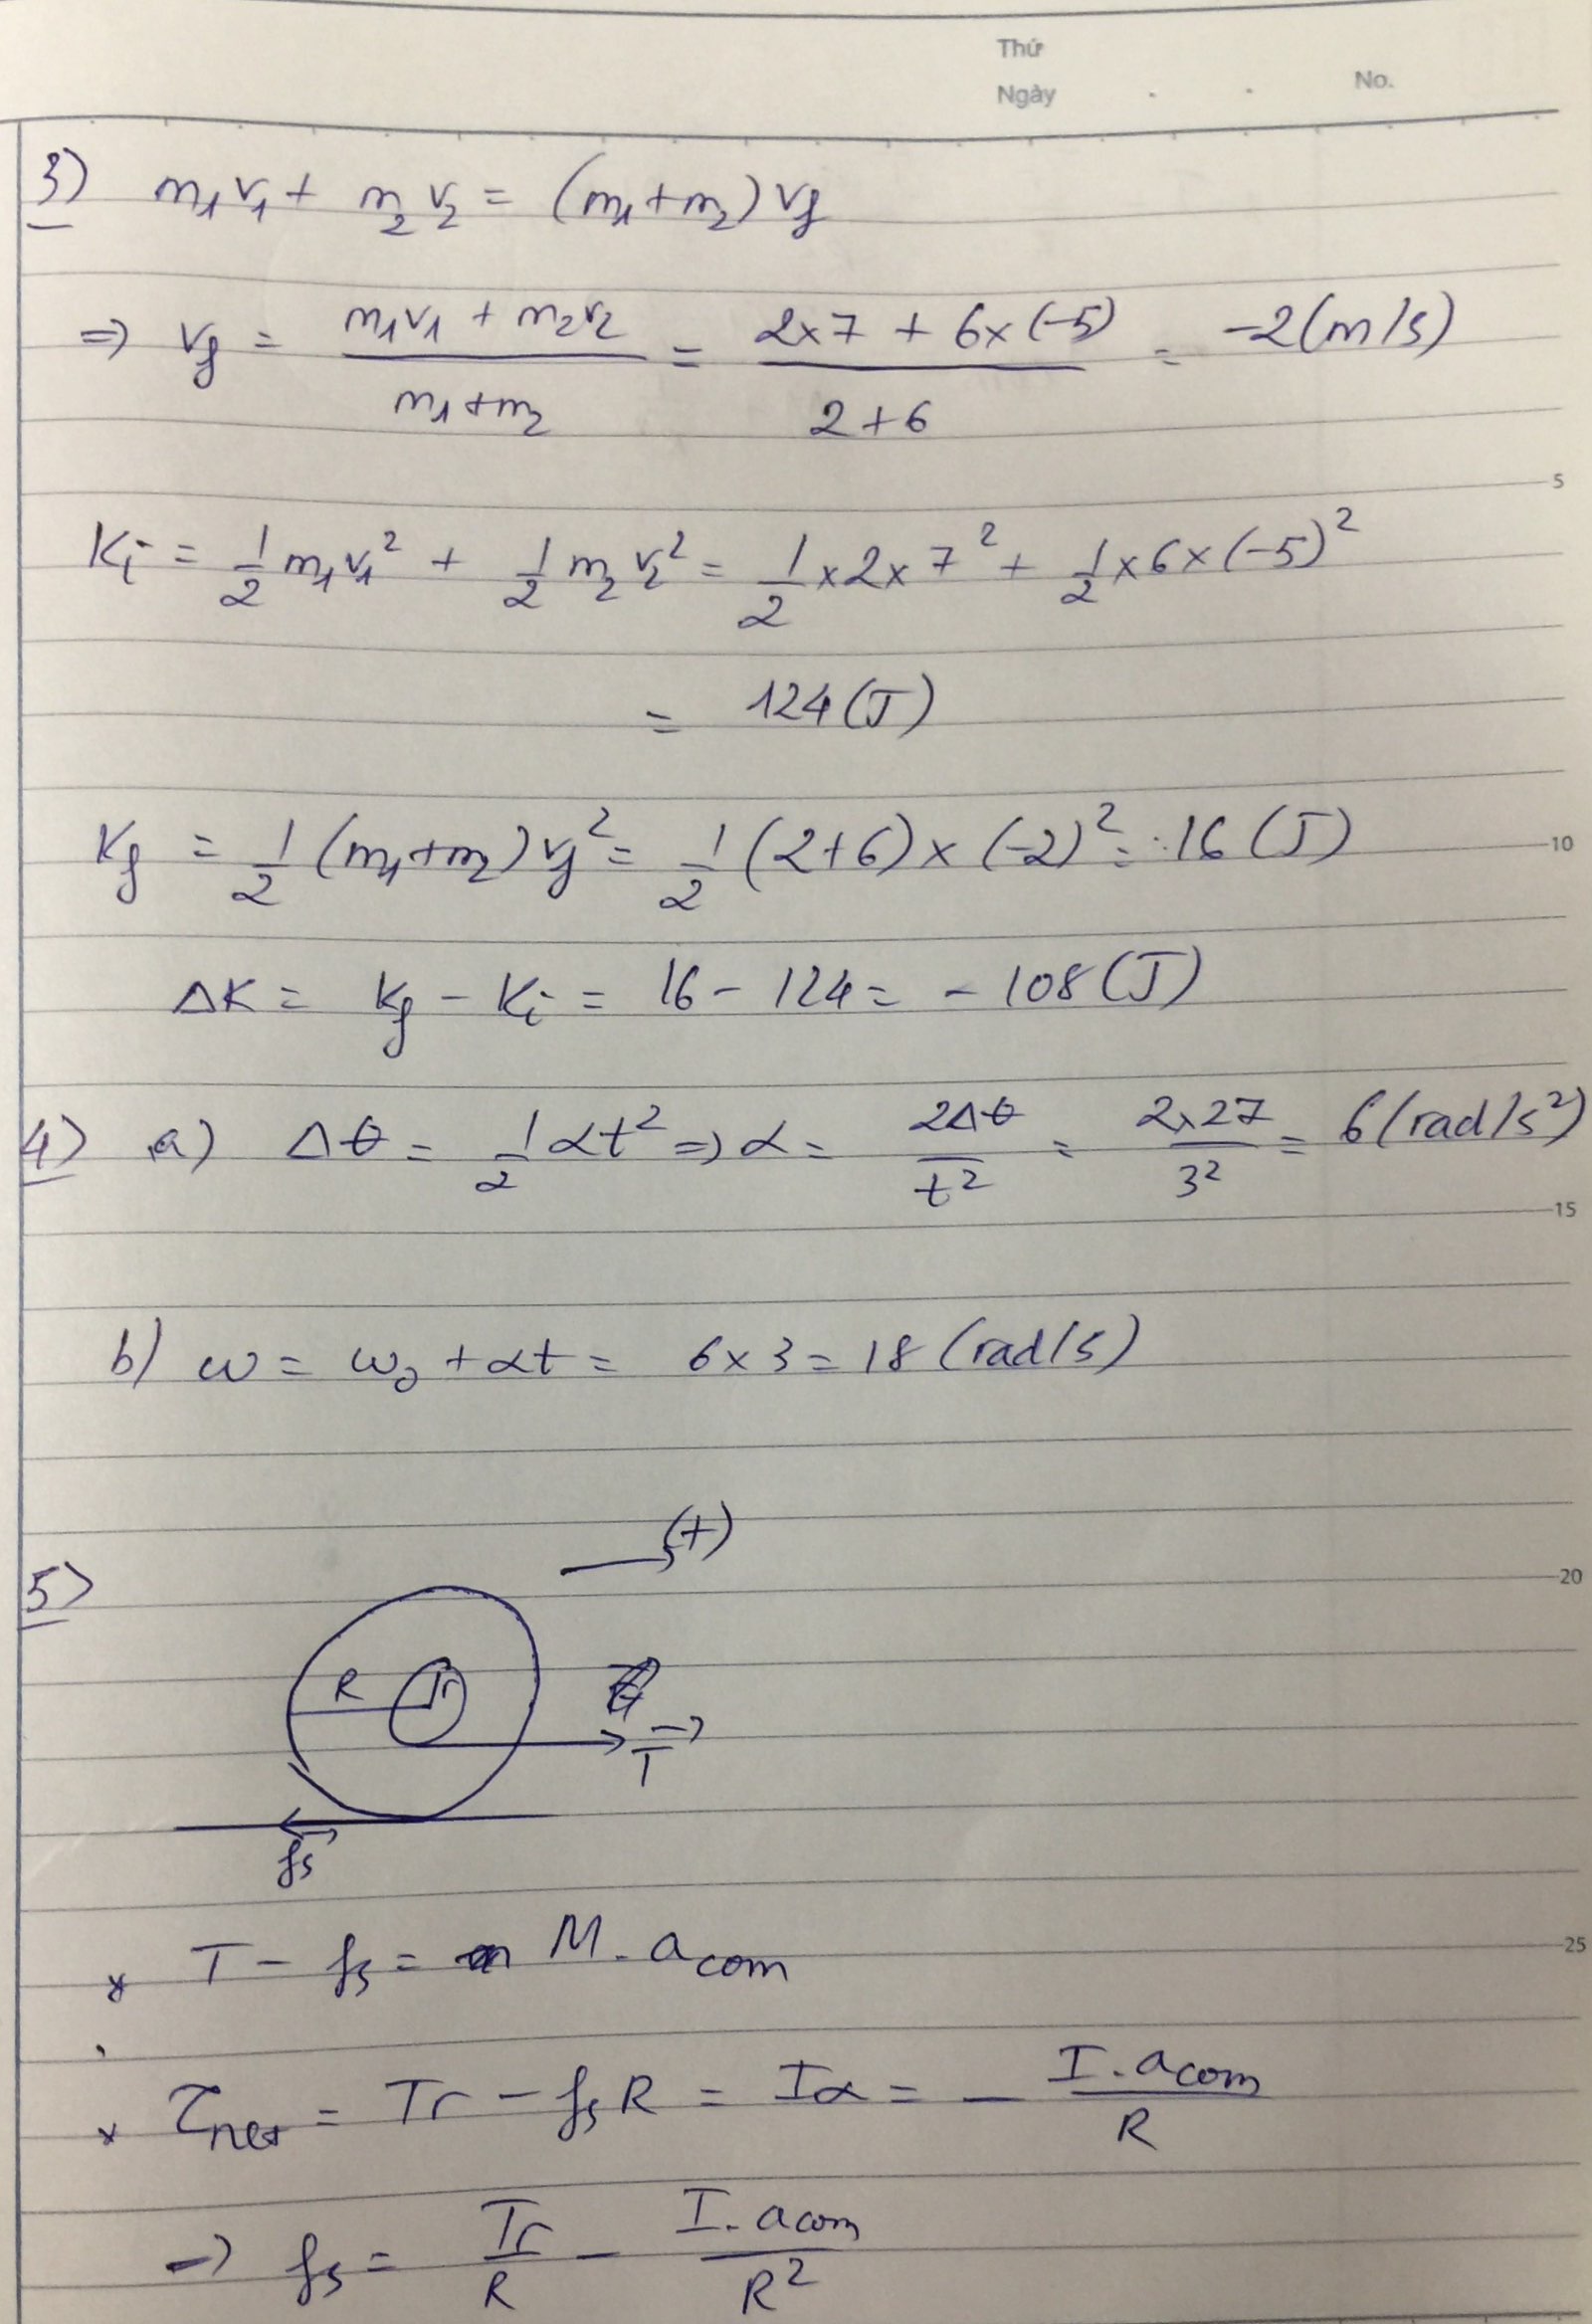 Thứ
Ngày . . No.
3) m₁v₁ + m₂v₂ = (m₁+m₂)vf
=> vf = (m₁v₁ + m₂v₂)/(m₁+m₂) = (2x7 + 6x(-5))/(2+6) = -2(m/s)
5
Ki = 1/2 m₁v₁² + 1/2 m₂v₂² = 1/2 x2x7² + 1/2 x6x(-5)²
= 124(J)
Kf = 1/2 (m₁+m₂)vf² = 1/2 (2+6)x(-2)² = 16(J)
10
ΔK = Kf - Ki = 16 - 124 = -108(J)
4) a) Δθ = 1/2 αt² => α = 2Δθ/t² = 2x27/3² = 6(rad/s²)
15
b) ω = ω₀ + αt = 6x3 = 18(rad/s)
(+)
5)
20
R r
T
fs
x T - fs = M.a com
25
x τnet = Tr - fsR = Iα = - I.a com/R
-> fs = Tr/R - I.a com/R²